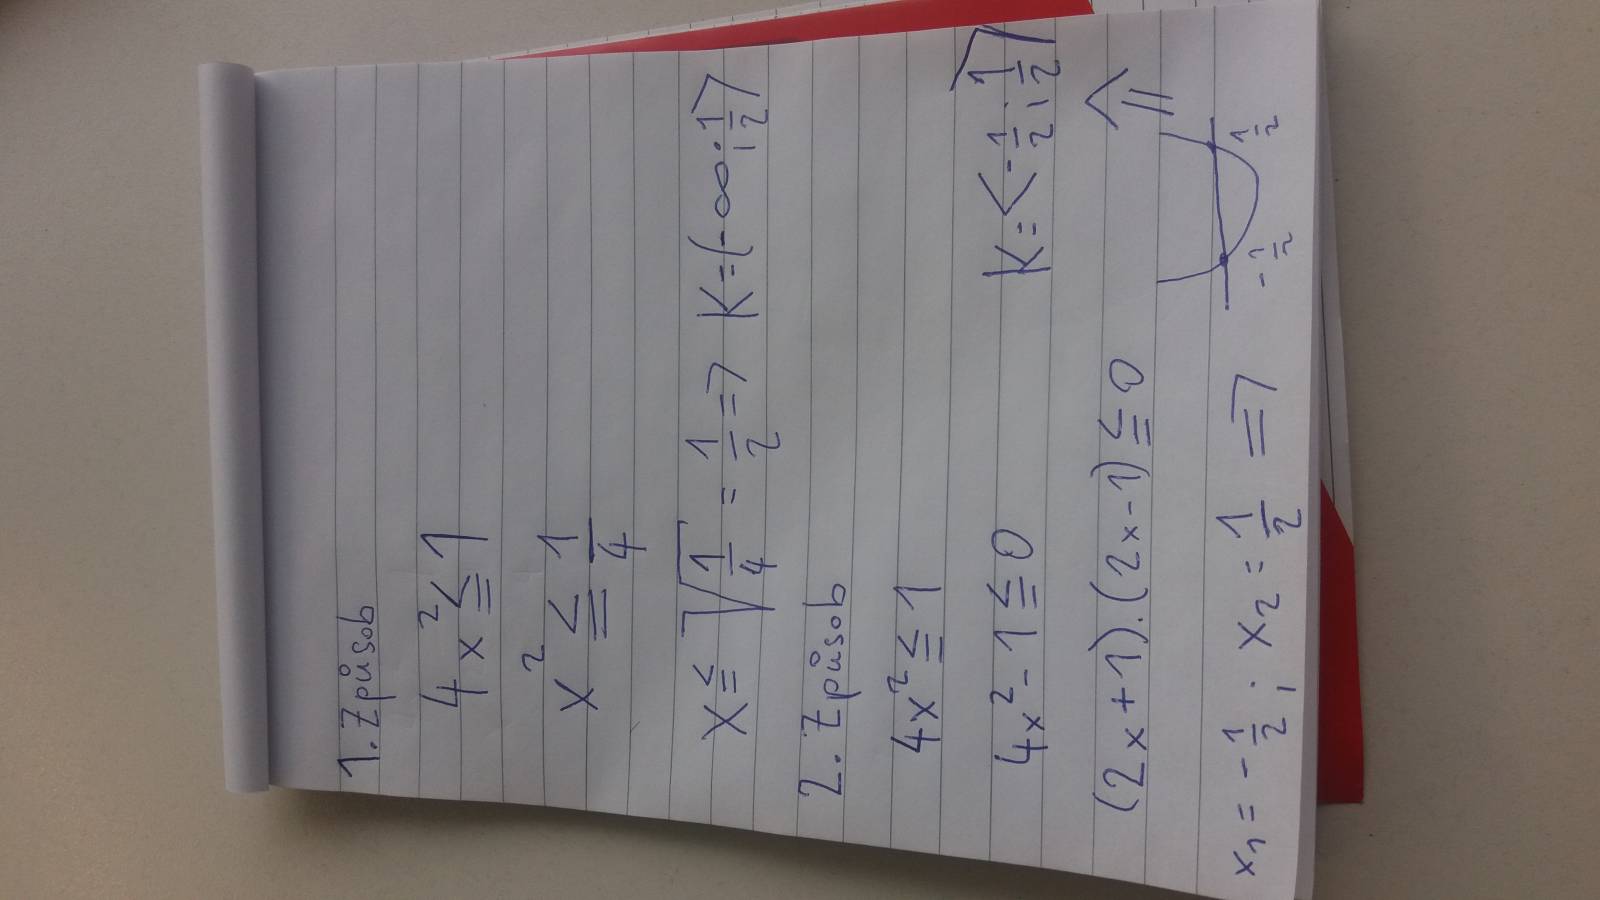 1. Způsob
4x² ≤ 1
x² ≤ 1/4
x ≤ √(1/4) = 1/2 => K = (-∞; 1/2⟩
2. Způsob
4x² ≤ 1
4x² - 1 ≤ 0
(2x+1).(2x-1) ≤ 0
x₁ = -1/2; x₂ = 1/2 =>
-1/2 1/2
=>
K = <-1/2; 1/2⟩